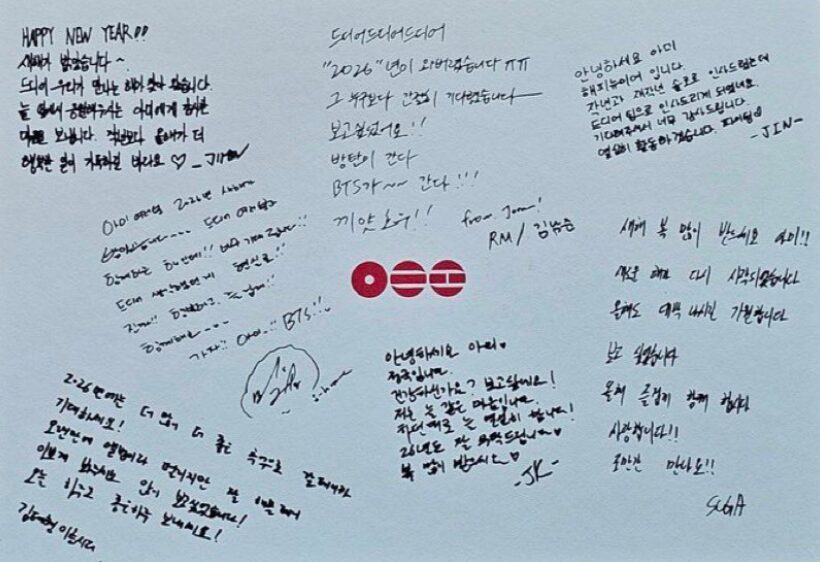 HAPPY NEW YEAR!!
새해가 밝았습니다~
드디어 우리가 만나는 해이
늘 옆에서 응원해주시는 아미에게
마음 보냅니다. 작년보다 올해가 더
행복한 일이 가득하길 바라요 ♡ - JIMIN
드디어드디어드디어
"2026"년이 와버렸습니다 ㅠㅠ
그 누구보다 간절히 기다렸습니다
보고싶었어요!!
방탄이 간다
BTS가~~ 간다!!!
끼얏호우!!
from. Joon!
RM / 김남준
안녕하세요 아미
해피뉴이어 입니다.
작년과 재작년 솔로로 인사드렸는데
드디어 팀으로 인사드리게 되었네요.
기다려주셔서 너무 감사드립니다.
열심히 활동하겠습니다. 파이팅
-JIN-
아미 여러분 2026년 새해가
밝았습니다~~~ 드디어
함께하는 해인데!! 너무 기대됩니다!!
드디어 현실로!!
진짜!! 행복하고
함께해요~~~
가자!! 아미!! BTS!!
새해 복 많이 받으세요 아미!!
새로운 해가 다시 시작되었습니다
올해도 대박 나시길 기원합니다
보고 싶었습니다
올해 즐겁게 함께 합시다
사랑합니다!!
조만간 만나요!!
SUGA
2026년에는 더 많이 더 좋은 추억으로
기대하세요!
오랜만에 앨범이라
많이 보고싶었습니다!
오늘 하루도 좋은하루 보내세요!
김태형
안녕하세요 아미♡
정국입니다.
건강하신가요? 보고싶네요!
저는 늘 같은 마음입니다.
늘 열심히 합니다!
26년도 잘 부탁드립니다♡
복 많이 받으시오♡
-JK-